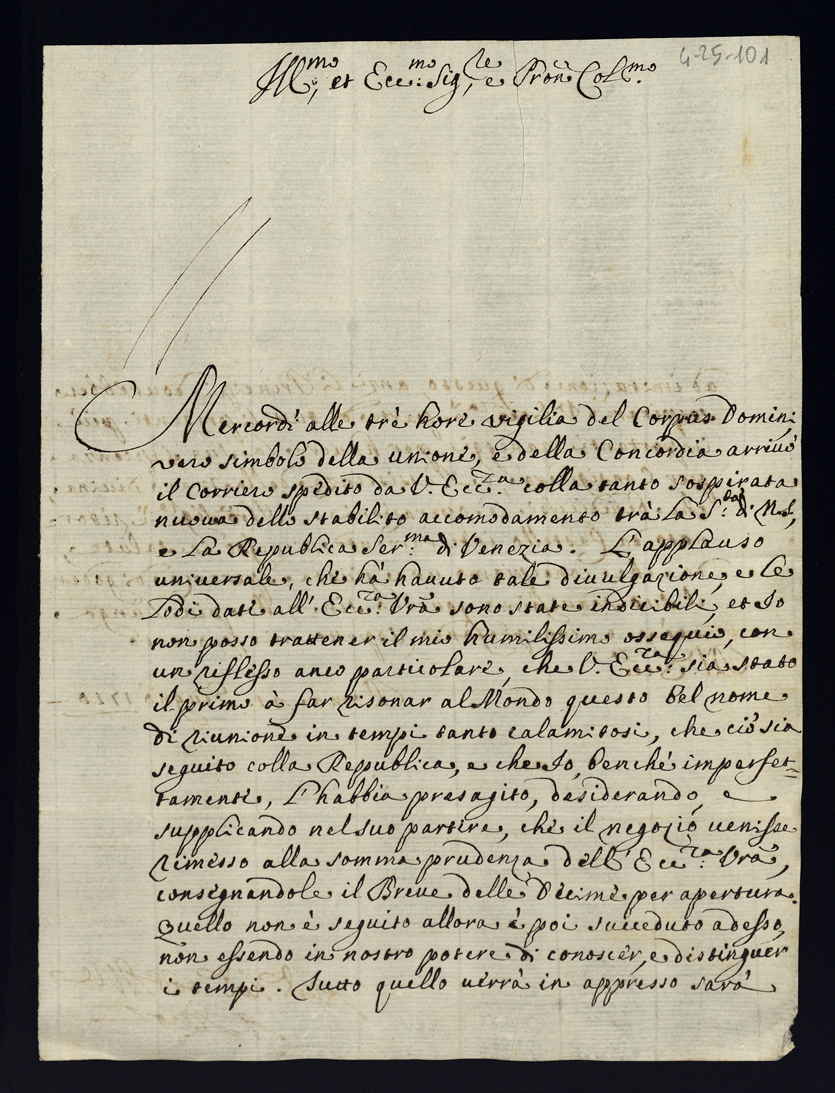 4-25-101
Ill.mo, et Ecc.mo Sig.re, e Pron Col.mo
Mercordì alle trè hore vigilia del Corpus Domini
vero simbolo della unione, e della Concordia arrivò
il Corriero spedito da V. Ecc.za colla tanto sospirata
nuova dello stabilito accomodamento trà la S.tà di N.S.,
e la Republica Ser.ma di Venezia. L'applauso
universale, che hà havuto tale divulgazione, e le
Lodi date all'Ecc.za Vrã sono state indicibili, et Io
non posso trattener il mio humilissimo ossequio, con
un riflesso anco particolare, che V. Ecc.za sia stato
il primo à far risonar al Mondo questo bel nome
di riunione in tempi tanto calamitosi, che ciò sia
seguito colla Republica, e che Io, benche imperfet=
tamente, l'habbia presagito, desiderando, e
supplicando nel suo partire, che il negozio venisse
rimesso alla somma prudenza dell'Ecc.za Vrã,
consegnandole il Breve delle Decime per apertura.
Quello non è seguito allora è poi succeduto adesso,
non essendo in nostro potere di conoscer, e distinguer
i tempi. Tutto quello verrà in appresso sarà